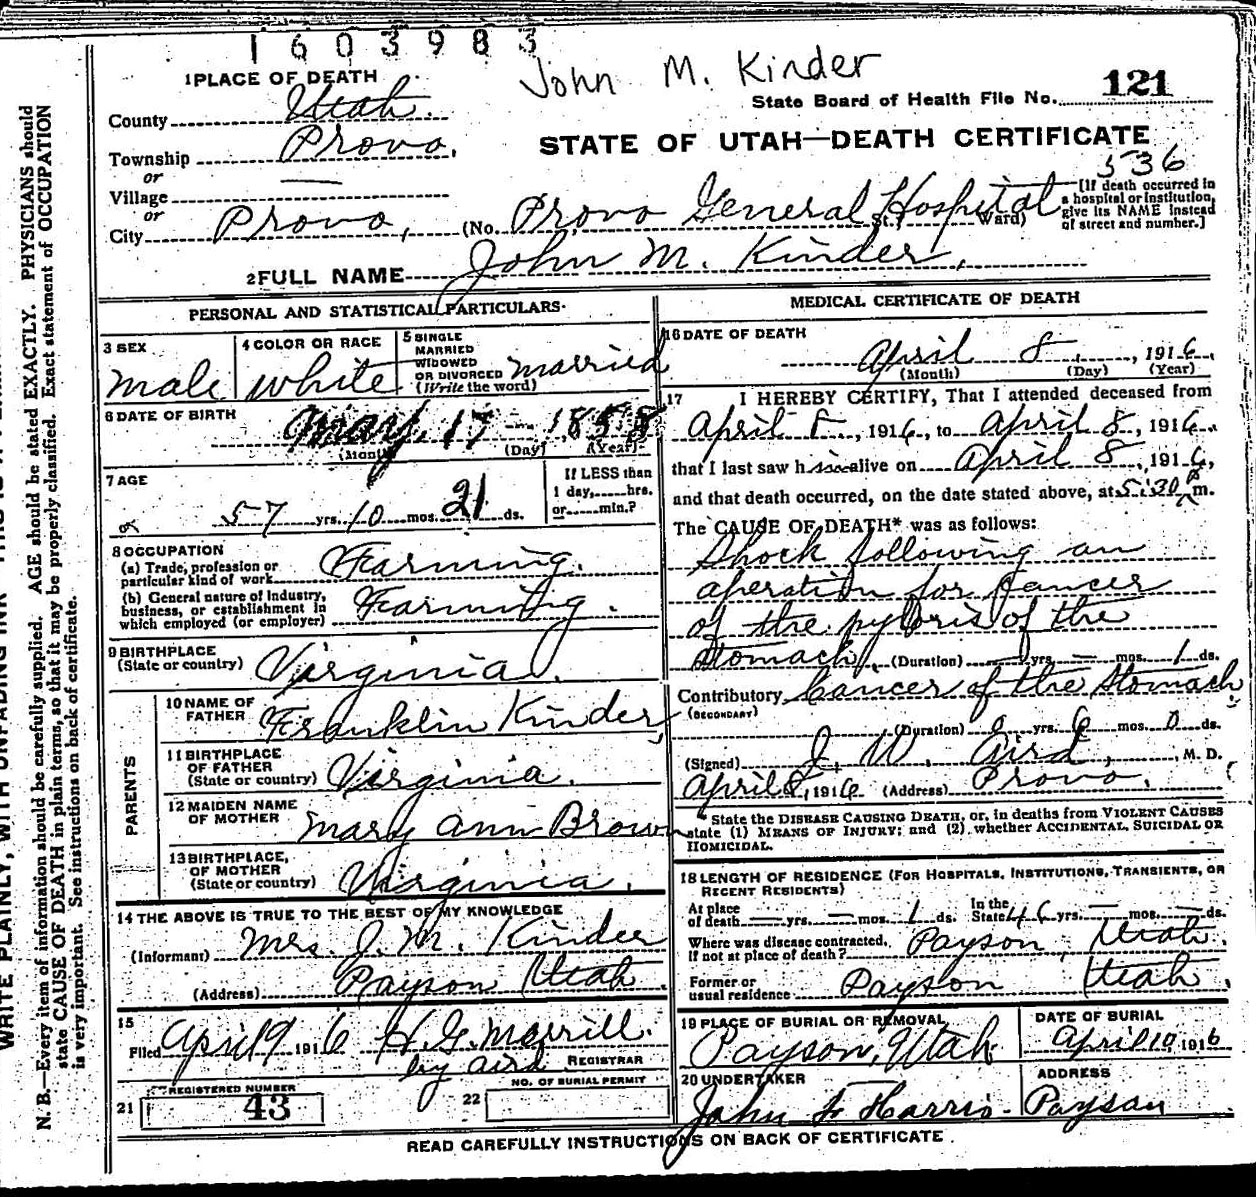 1603983
John M. Kinder
1 PLACE OF DEATH
State Board of Health File No. 121
County Utah.
Township Provo,
STATE OF UTAH—DEATH CERTIFICATE
or
536
Village —
or
City Provo, (No. Provo General Hospital St.; Ward)
[If death occurred in
a hospital or institution,
give its NAME instead
of street and number.]
2 FULL NAME John M. Kinder,
PERSONAL AND STATISTICAL PARTICULARS
3 SEX
male
4 COLOR OR RACE
white
5 SINGLE
MARRIED
WIDOWED
OR DIVORCED
(Write the word)
married
6 DATE OF BIRTH
May, 17 — 1858
(Month) (Day) (Year)
7 AGE
57 yrs. 10 mos. 21 ds.
If LESS than
1 day, hrs.
or min.?
8 OCCUPATION
(a) Trade, profession or
particular kind of work Farming.
(b) General nature of Industry,
business, or establishment in
which employed (or employer) Farming.
9 BIRTHPLACE
(State or country) Virginia.
PARENTS
10 NAME OF
FATHER Franklin Kinder,
11 BIRTHPLACE
OF FATHER
(State or country) Virginia.
12 MAIDEN NAME
OF MOTHER Mary Ann Brown
13 BIRTHPLACE,
OF MOTHER
(State or country) Virginia.
14 THE ABOVE IS TRUE TO THE BEST OF MY KNOWLEDGE
(Informant) Mrs. J. M. Kinder
(Address) Payson Utah.
15
Filed April 9 1916 H. G. Merrill.
by Aird REGISTRAR
REGISTERED NUMBER
21 43
NO. OF BURIAL PERMIT
22
MEDICAL CERTIFICATE OF DEATH
16 DATE OF DEATH
April 8, 1916,
(Month) (Day) (Year)
17 I HEREBY CERTIFY, That I attended deceased from
April 8, 1916, to April 8, 1916.
that I last saw him alive on April 8, 1916,
and that death occurred, on the date stated above, at 5:30 P m.
The CAUSE OF DEATH* was as follows:
Shock following an
operation for Cancer
of the pyloris of the
Stomach. (Duration) — yrs. — mos. 1 ds.
Contributory Cancer of the Stomach.
(SECONDARY)
(Duration) 0 yrs. 6 mos. 0 ds.
(Signed) J. W. Aird, M. D.
April 8, 1916 (Address) Provo.
State the DISEASE CAUSING DEATH, or, in deaths from VIOLENT CAUSES
state (1) MEANS OF INJURY; and (2) whether ACCIDENTAL, SUICIDAL OR
HOMICIDAL.
18 LENGTH OF RESIDENCE (FOR HOSPITALS, INSTITUTIONS, TRANSIENTS, OR
RECENT RESIDENTS)
At place
of death — yrs. — mos. 1 ds.
In the
State 46 yrs. — mos. — ds.
Where was disease contracted,
If not at place of death? Payson, Utah.
Former or
usual residence Payson Utah.
19 PLACE OF BURIAL OR REMOVAL
Payson, Utah
DATE OF BURIAL
April 10, 1916
20 UNDERTAKER
John F Harris.
ADDRESS
Payson
READ CAREFULLY INSTRUCTIONS ON BACK OF CERTIFICATE.
WRITE PLAINLY, WITH UNFADING INK—THIS IS A
N. B.—Every item of information should be carefully supplied. AGE should be stated EXACTLY. PHYSICIANS should
state CAUSE OF DEATH in plain terms, so that it may be properly classified. Exact statement of OCCUPATION
is very important. See instructions on back of certificate.